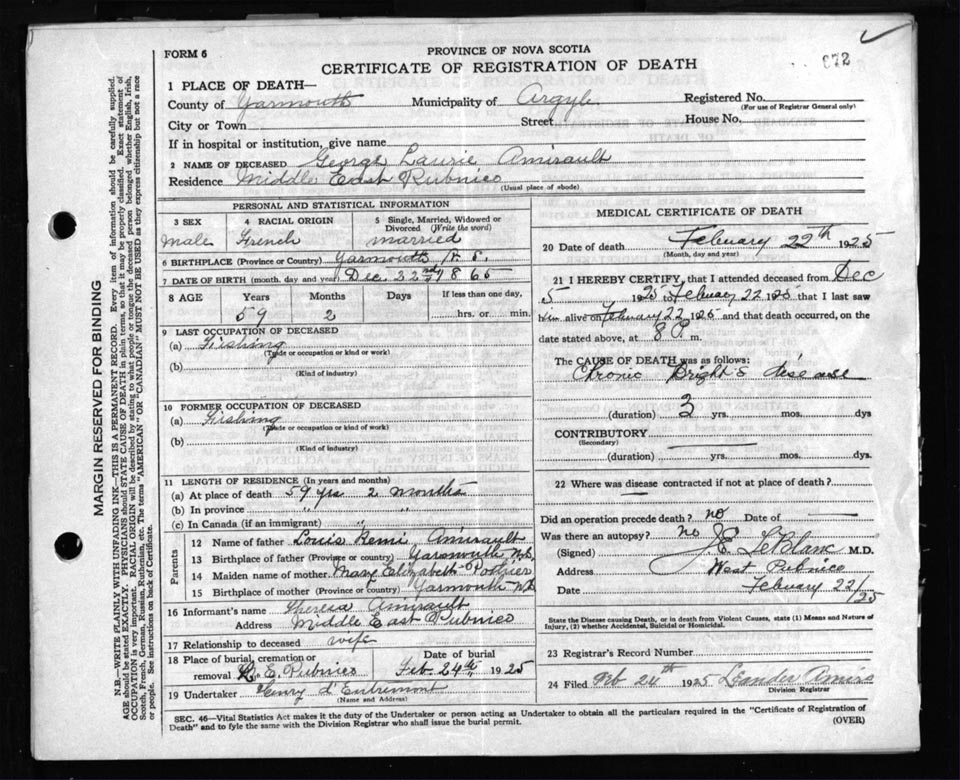 FORM 6
PROVINCE OF NOVA SCOTIA
CERTIFICATE OF REGISTRATION OF DEATH
672
1 PLACE OF DEATH—
County of Yarmouth Municipality of Argyle Registered No.
(For use of Registrar General only)
City or Town Street House No.
If in hospital or institution, give name
2 NAME OF DECEASED George Laurie Amirault
Residence Middle East Pubnico
(Usual place of abode)
MARGIN RESERVED FOR BINDING
N.B.—WRITE PLAINLY WITH UNFADING INK—THIS IS A PERMANENT RECORD. Every item of information should be carefully supplied.
AGE should be stated EXACTLY. PHYSICIANS should STATE CAUSE OF DEATH in plain terms, so that it may be properly classified. Exact statement of
OCCUPATION is very important. RACIAL ORIGIN will be described by stating to what people or tongue the deceased person belonged whether English, Irish,
Scotch, French, German, Russian, Ruthenian, etc. The terms "AMERICAN" OR "CANADIAN" MUST NOT BE USED as they express citizenship but not a race
or people. See instructions on back of Certificate.
PERSONAL AND STATISTICAL INFORMATION
3 SEX 4 RACIAL ORIGIN 5 Single, Married, Widowed or
Divorced (Write the word)
Male French married
6 BIRTHPLACE (Province or Country) Yarmouth N. S.
7 DATE OF BIRTH (month, day and year) Dec 1865
8 AGE Years Months Days If less than one day,
59 2 hrs. or min.
9 LAST OCCUPATION OF DECEASED
(a) Fishing
(Trade or occupation or kind or work)
(b)
(Kind of industry)
10 FORMER OCCUPATION OF DECEASED
(a) Fishing
(Trade or occupation or kind of work)
(b)
(Kind of industry)
11 LENGTH OF RESIDENCE (In years and months)
(a) At place of death 59 yrs 2 months
(b) In province " "
(c) In Canada (if an immigrant) "
Parents
12 Name of father Louis Remi Amirault
13 Birthplace of father (Province or country) Yarmouth N.S.
14 Maiden name of mother Mary Elizabeth Pothier
15 Birthplace of mother (Province or country) Yarmouth N.S.
16 Informant's name Theresa Amirault
Address Middle East Pubnico
17 Relationship to deceased wife
18 Place of burial, cremation or Date of burial
removal E. Pubnico Feb. 24th, 1925
19 Undertaker Henry d Entremont
(Name and Address)
MEDICAL CERTIFICATE OF DEATH
20 Date of death February 22th 1925
(Month, day and year)
21 I HEREBY CERTIFY, that I attended deceased from Dec
5 1925 to February 22 1925 that I last saw
him alive on February 22 1925 and that death occurred, on the
date stated above, at 8 P. m.
The CAUSE OF DEATH was as follows:
Chronic Bright's disease
(duration) 3 yrs. mos. dys
CONTRIBUTORY
(Secondary)
(duration) yrs. mos. dys.
22 Where was disease contracted if not at place of death?
Did an operation precede death? no Date of
Was there an autopsy? No
(Signed) J. E. LeBlanc M.D.
Address West Pubnico
Date February 22/25
State the Disease causing Death, or in death from Violent Causes, state (1) Means and Nature of
Injury, (2) whether Accidental, Suicidal or Homicidal.
23 Registrar's Record Number
24 Filed Feb 24th 1925 Leander
Division Registrar
SEC. 46—Vital Statistics Act makes it the duty of the Undertaker or person acting as Undertaker to obtain all the particulars required in the "Certificate of Registration of
Death" and to fyle the same with the Division Registrar who shall issue the burial permit.
(OVER)